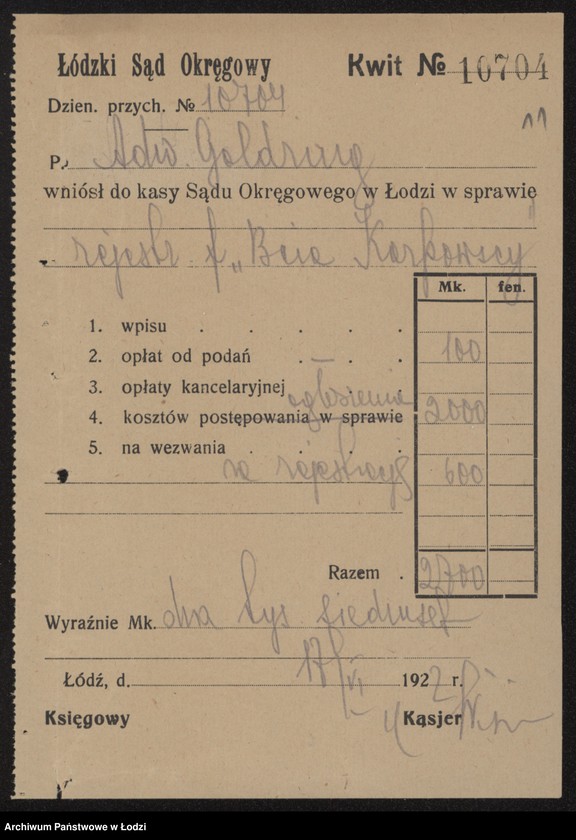 Łódzki Sąd Okręgowy Kwit № 10704
Dzien. przych. № 10704
11
P. Adw. Goldring
wniósł do kasy Sądu Okręgowego w Łodzi w sprawie
rejestr f. „Bcia Karpowscy"
Mk. fen.
1. wpisu . . . . .
2. opłat od podań . . . 100
3. opłaty kancelaryjnej ogłoszenie
4. kosztów postępowania w sprawie 2000
5. na wezwania . . . . .
na rejestrację 600
Razem . 2700
Wyraźnie Mk. dwa tys siedmset
Łódź, d. 17/VI 1922 r.
Księgowy Kąsjer
Archiwum Państwowe w Łodzi